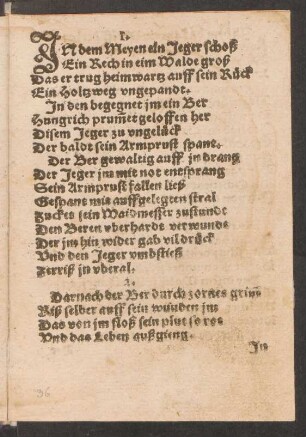 1.
IN dem Meyen ein Jeger schoß
Ein Rech in eim Walde groß
Das er trug heimwartz auff sein Rück
Ein Holtzweg vngepandt.
In den begegnet jm ein Ber
Hungrich prum̃et geloffen her
Disem Jeger zu vngelück
Der baldt sein Armprust spant.
Der Ber gewaltig auff jn drang
Der Jeger jm mit not entsprang
Sein Armprust fallen ließ
Gespant mit auffgelegten stral
Zucket sein Waidmesser zustundt
Den Beren vberhardt verwundt
Der jm hin wider gab vil drück
Vnd den Jeger vmbstieß
Zerriß jn vberal.
2.
Darnach der Ber durch zornes grim̃
Riß selber auff sein wunden jm
Das von jm floß sein plut so rot
Vnd das Leben außgieng.
Jn
96